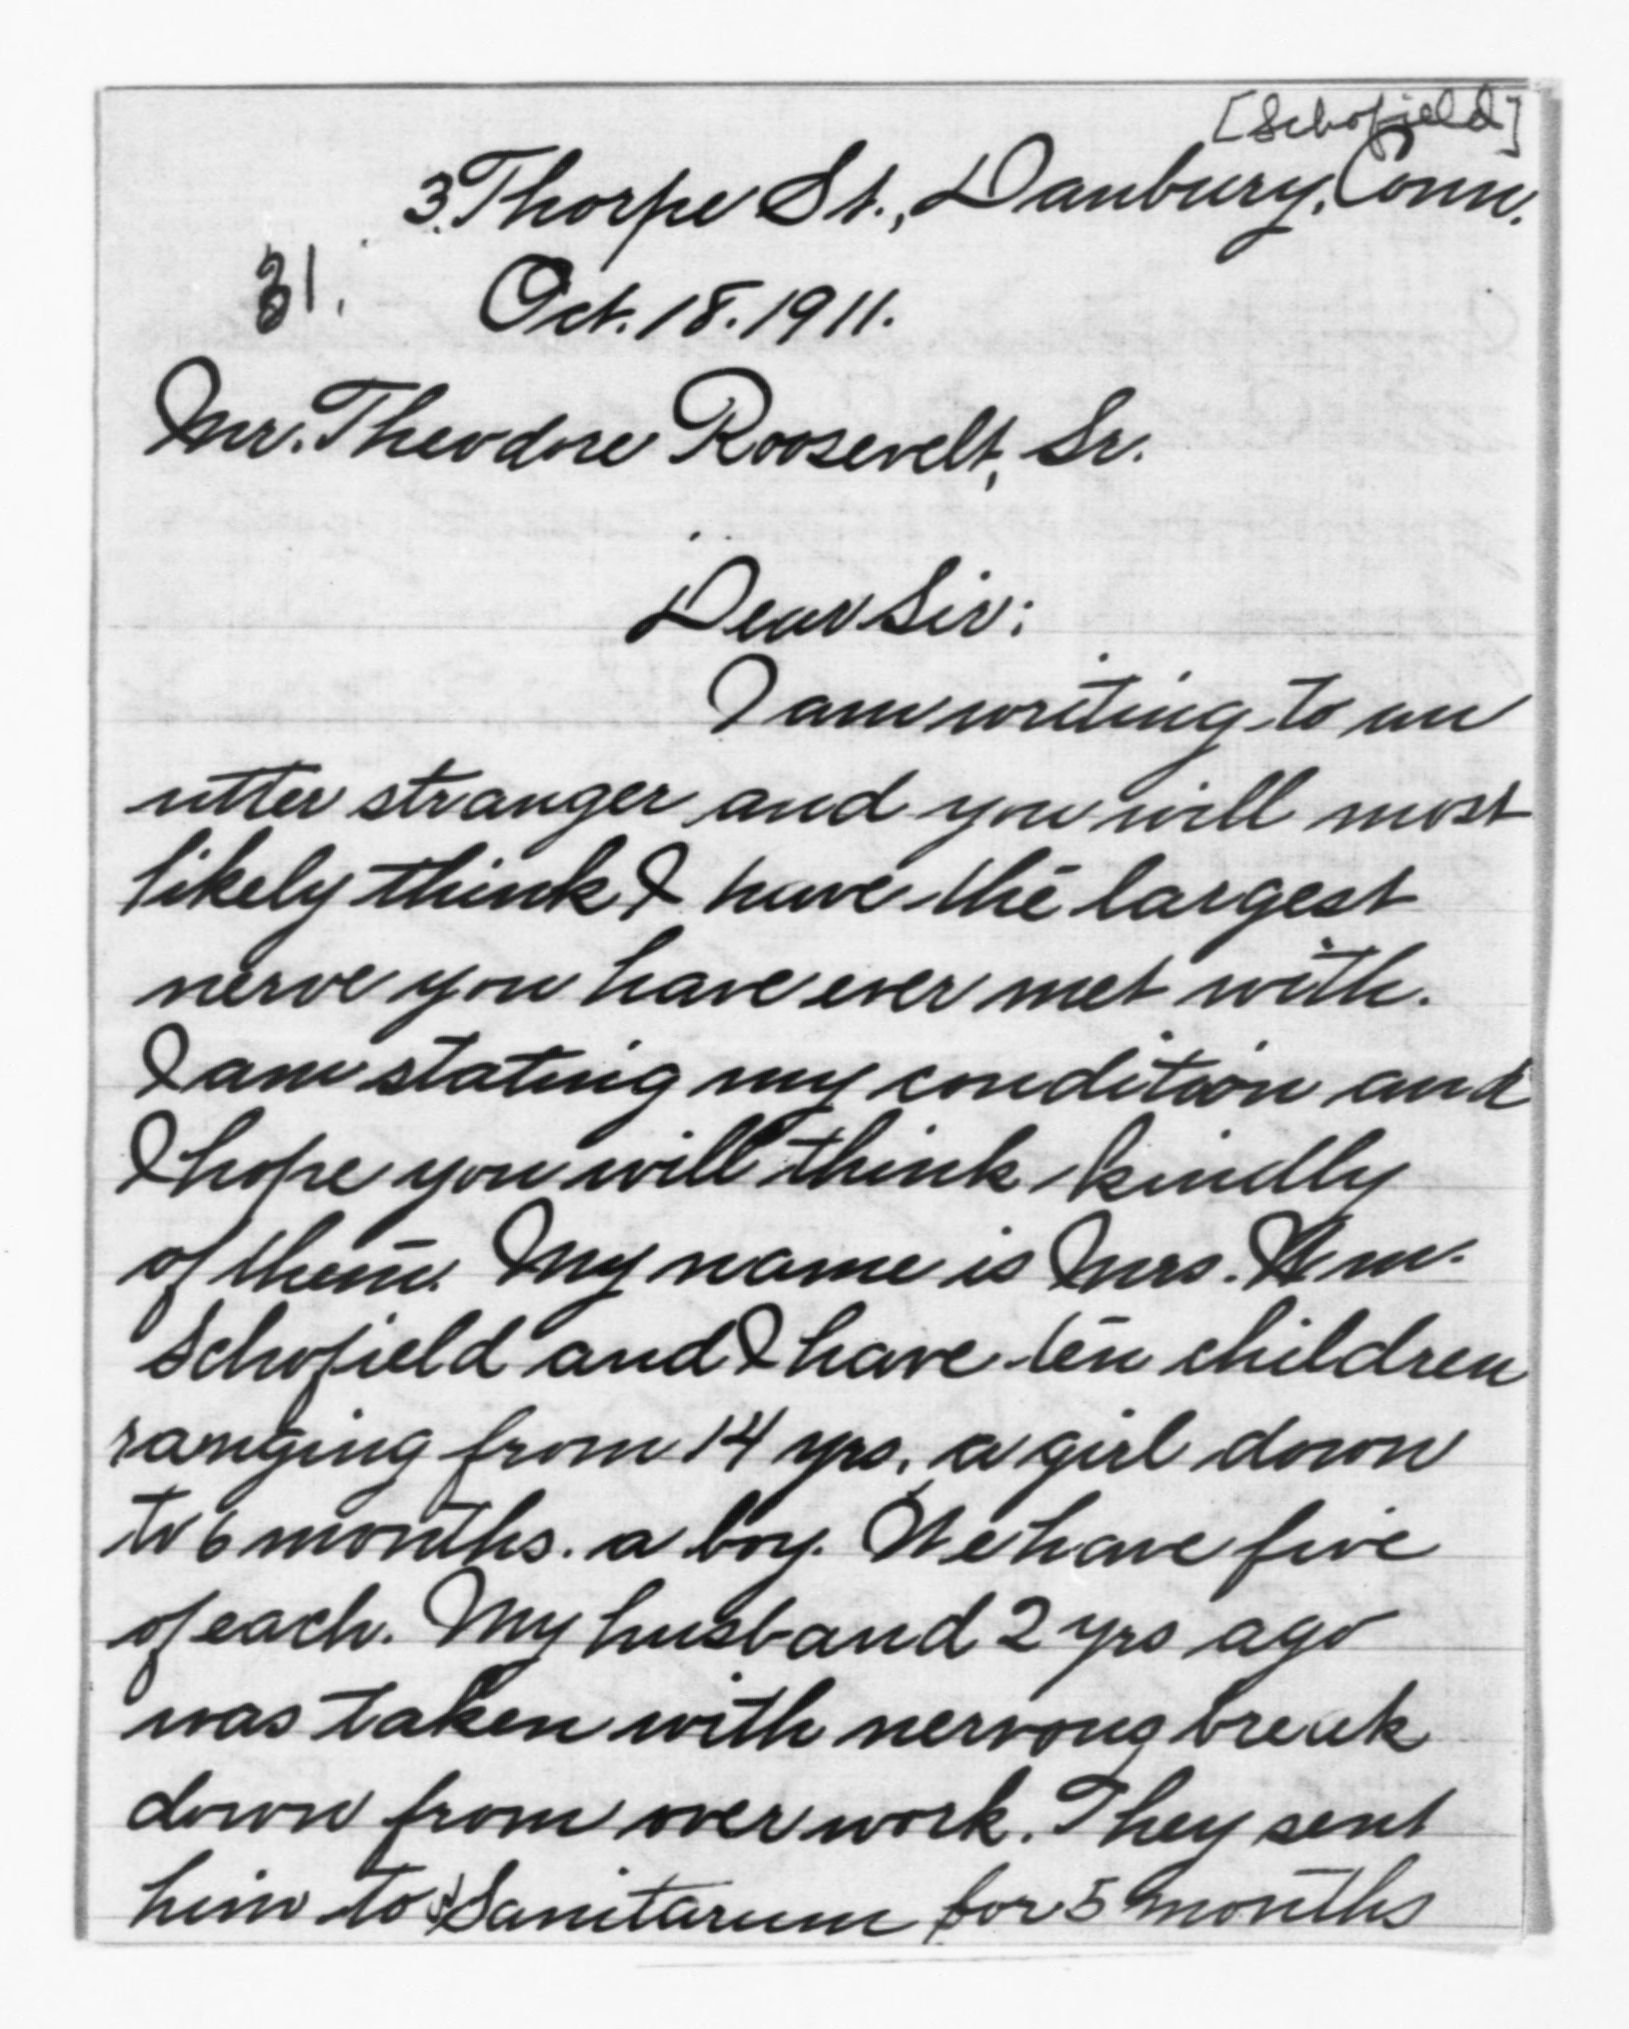 [Schofield]
3. Thorpe St., Danbury, Conn.
31. Oct. 18. 1911.
Mr. Theodore Roosevelt, Sr.
Dear Sir:
I am writing to an
utter stranger and you will most
likely think I have the largest
nerve you have ever met with.
I am stating my condition and
I hope you will think kindly
of them. My name is Mrs. Wm.
Schofield and I have ten children
ranging from 14 yrs. a girl down
to 6 months. a boy. We have five
of each. My husband 2 yrs ago
was taken with nervous break
down from over work. They sent
him to Sanitarum for 5 months